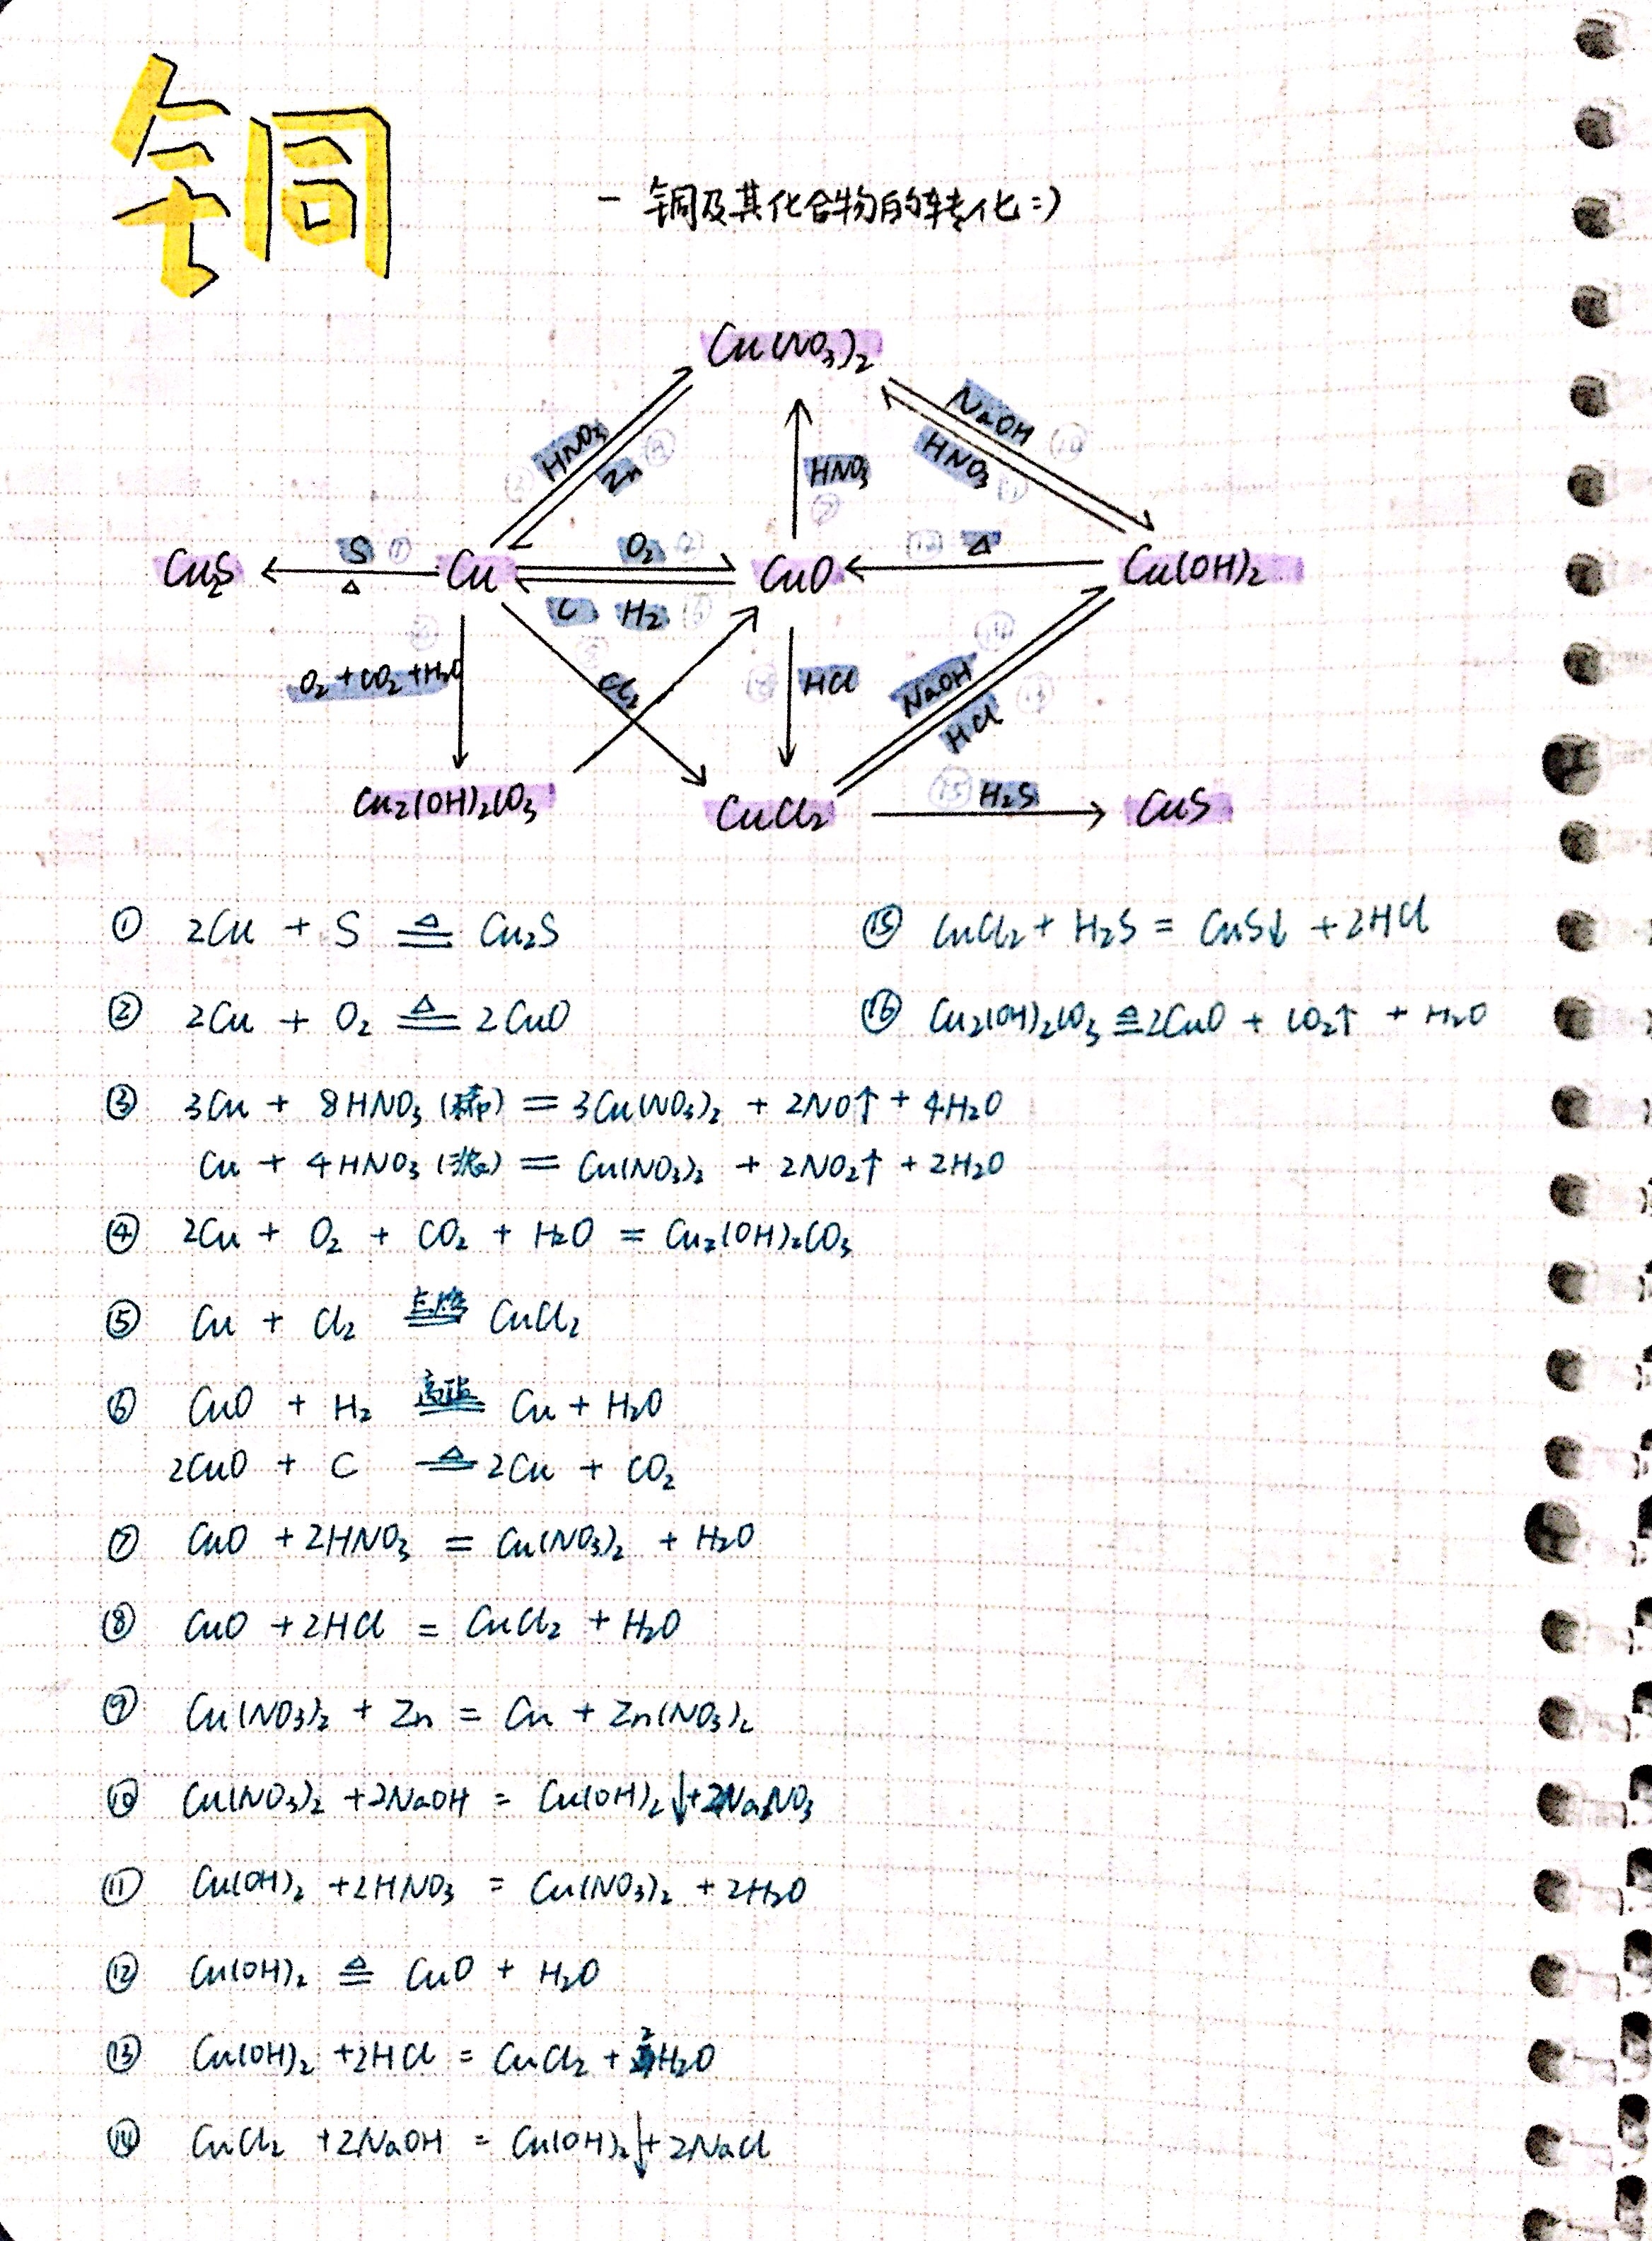 铜
- 铜及其化合物的转化:)
Cu(NO₃)₂
HNO₃
Zn
HNO₃
NaOH
HNO₃
Cu₂S
S ①
△
Cu
O₂
C H₂
CuO
△
Cu(OH)₂
O₂+CO₂+H₂O
Cl₂
HCl
NaOH
HCl
Cu₂(OH)₂CO₃
CuCl₂
⑮ H₂S
CuS
① 2Cu + S ≜ Cu₂S
② 2Cu + O₂ ≜ 2CuO
③ 3Cu + 8HNO₃(稀) = 3Cu(NO₃)₂ + 2NO↑ + 4H₂O
Cu + 4HNO₃(浓) = Cu(NO₃)₂ + 2NO₂↑ + 2H₂O
④ 2Cu + O₂ + CO₂ + H₂O = Cu₂(OH)₂CO₃
⑤ Cu + Cl₂ 点燃 CuCl₂
⑥ CuO + H₂ 高温 Cu + H₂O
2CuO + C ≜ 2Cu + CO₂
⑦ CuO + 2HNO₃ = Cu(NO₃)₂ + H₂O
⑧ CuO + 2HCl = CuCl₂ + H₂O
⑨ Cu(NO₃)₂ + Zn = Cu + Zn(NO₃)₂
⑩ Cu(NO₃)₂ + 2NaOH = Cu(OH)₂↓ + 2NaNO₃
⑪ Cu(OH)₂ + 2HNO₃ = Cu(NO₃)₂ + 2H₂O
⑫ Cu(OH)₂ ≜ CuO + H₂O
⑬ Cu(OH)₂ + 2HCl = CuCl₂ + 2H₂O
⑭ CuCl₂ + 2NaOH = Cu(OH)₂↓ + 2NaCl
⑮ CuCl₂ + H₂S = CuS↓ + 2HCl
⑯ Cu₂(OH)₂CO₃ ≜ 2CuO + CO₂↑ + H₂O